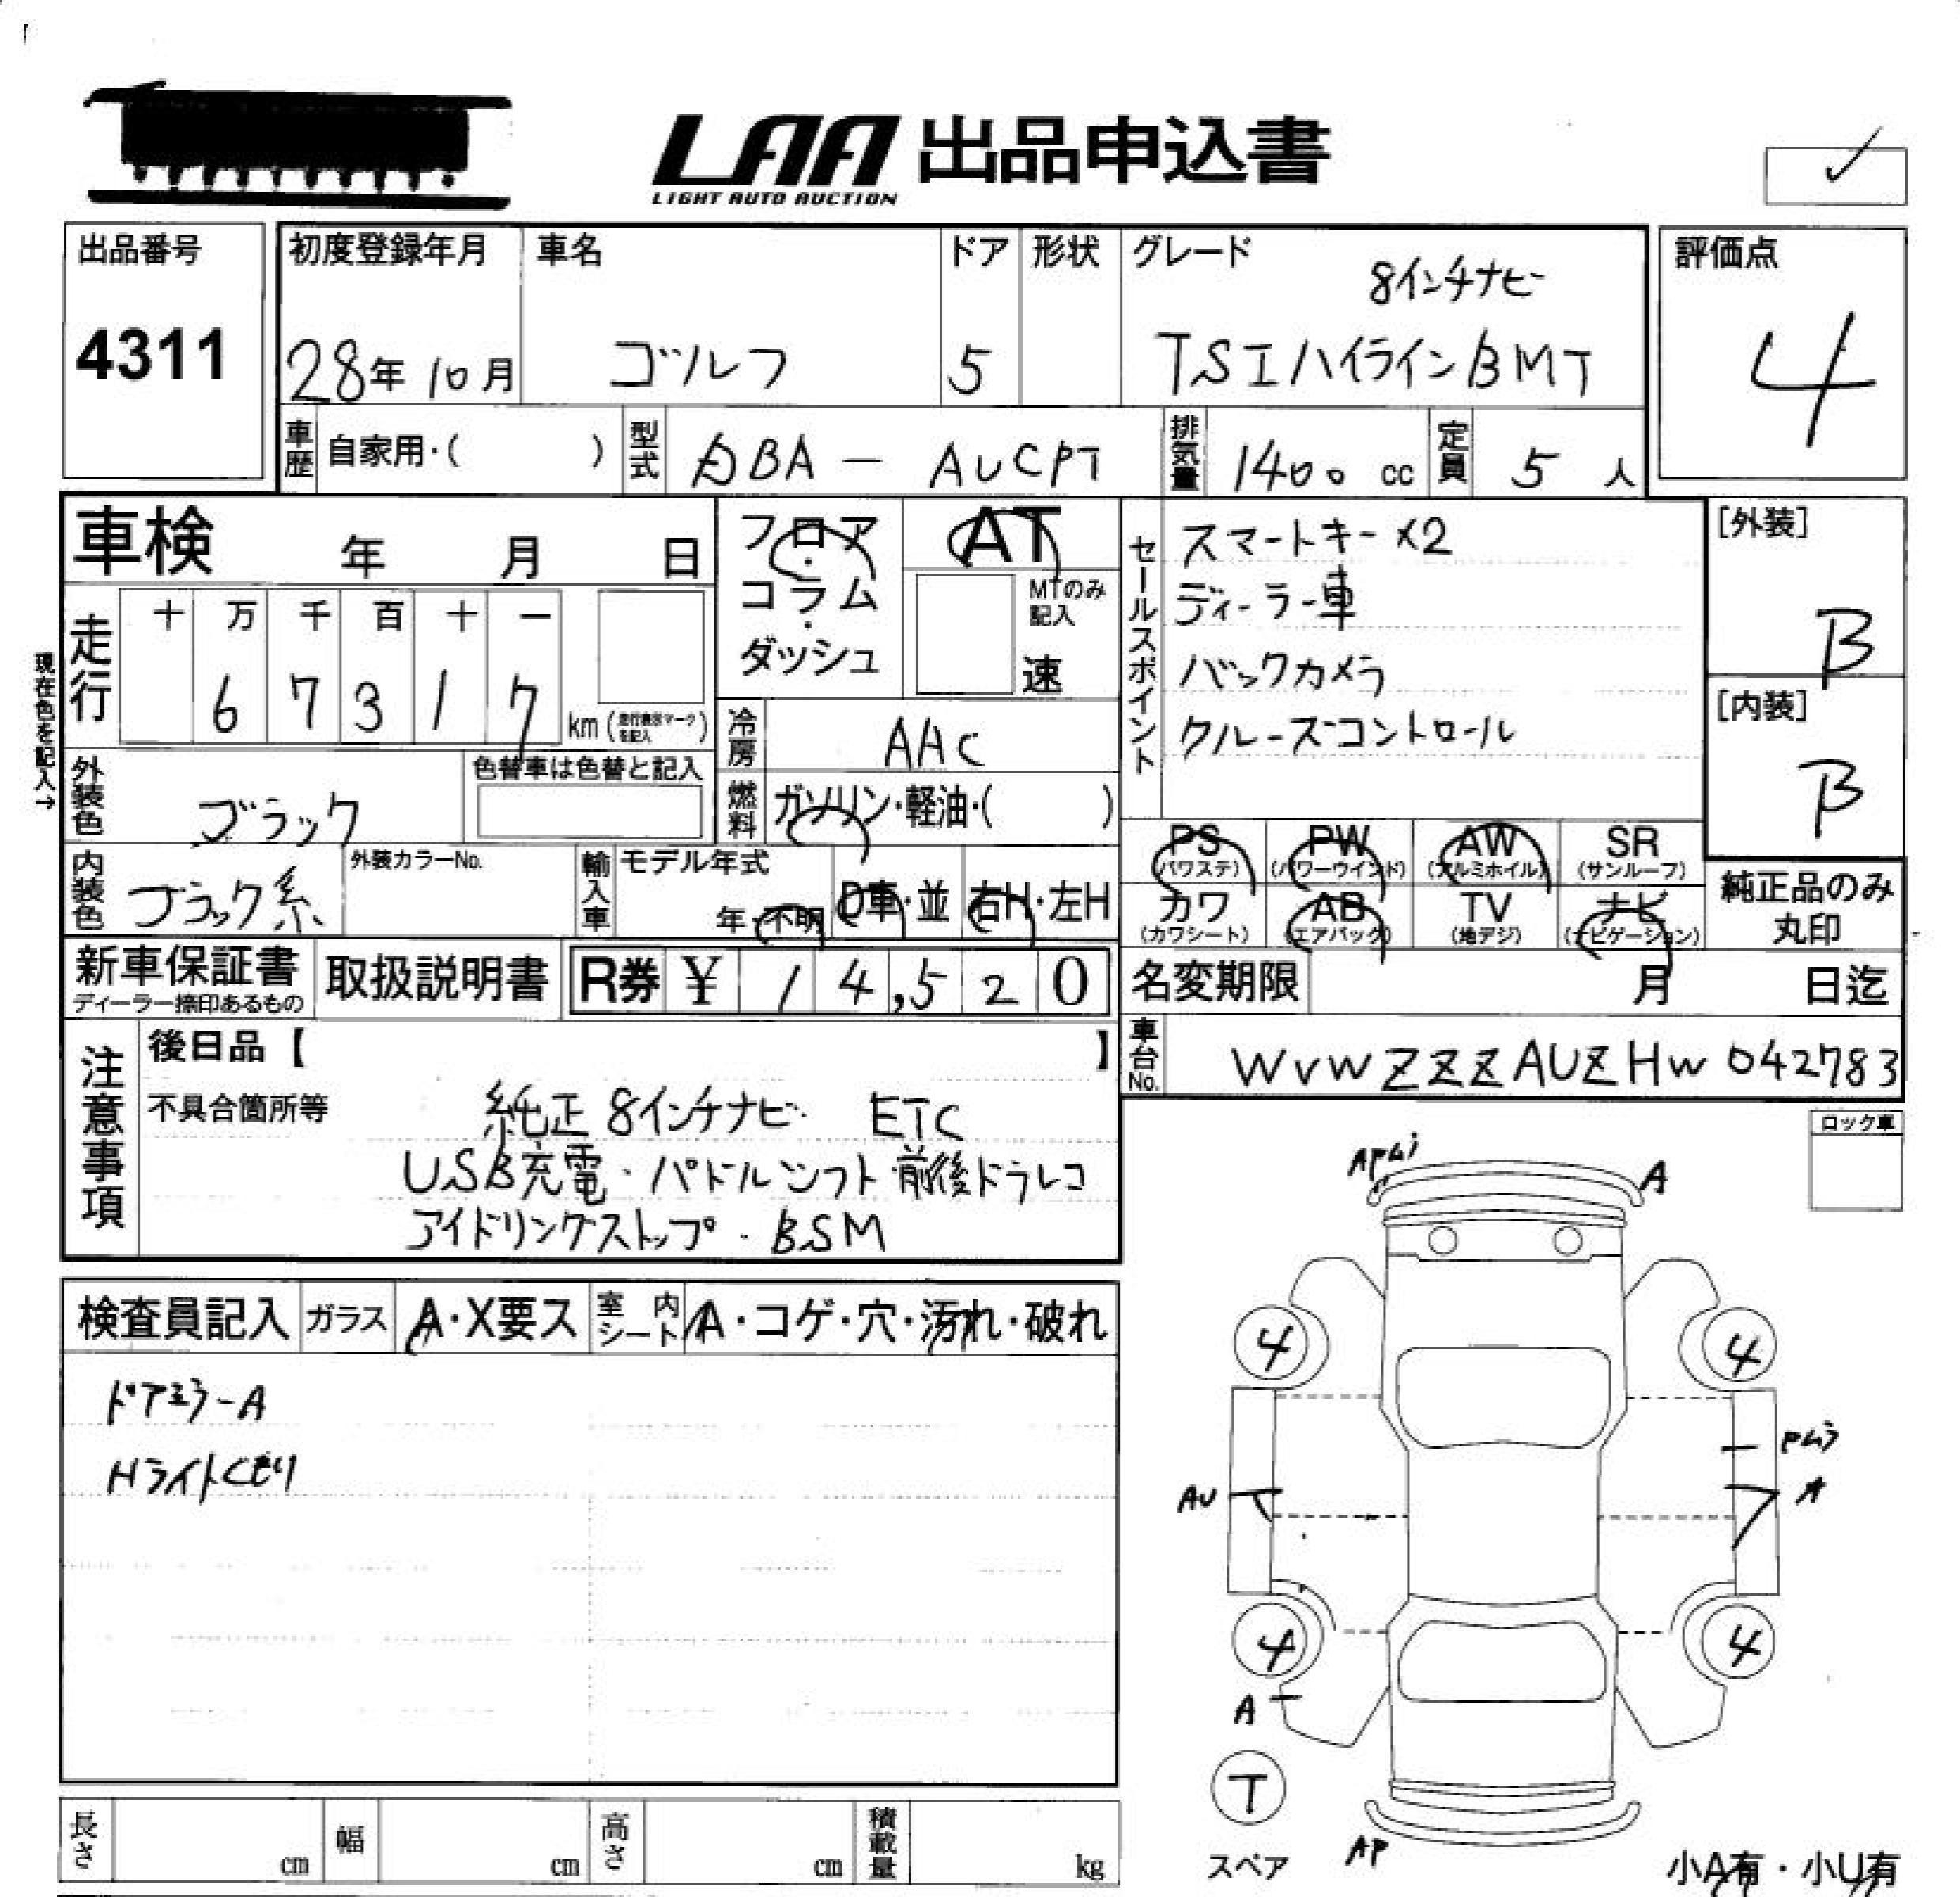 LAA 出品申込書
LIGHT AUTO AUCTION
出品番号
4311
初度登録年月
28年10月
車名
ゴルフ
ドア
5
形状
グレード
8インチナビ
TSIハイラインBMT
評価点
4
車歴
自家用・( )
型式
DBA - AUCPT
排気量
1400 cc
定員
5 人
車検 年 月 日
フロア・コラム・ダッシュ
AT
MTのみ記入
速
セールスポイント
スマートキー×2
ディーラー車
バックカメラ
クルーズコントロール
[外装]
B
[内装]
B
現在色を記入→
走行
十 万 千 百 十 一
6 7 3 1 7
km (走行表示マークを記入)
冷房
AAC
外装色
ブラック
色替車は色替と記入
燃料
ガソリン・軽油・( )
内装色
ブラック系
外装カラーNo.
輸入車
モデル年式
年・不明
D車・並
右H・左H
PS
(パワステ)
PW
(パワーウインド)
AW
(アルミホイル)
SR
(サンルーフ)
カワ
(カワシート)
AB
(エアバック)
TV
(地デジ)
ナビ
(ナビゲーション)
純正品のみ
丸印
新車保証書
ディーラー捺印あるもの
取扱説明書
R券 ¥ 14,520
名変期限 月 日迄
車台No.
WVWZZZAUZHW042783
注意事項
後日品【 】
不具合箇所等
純正8インチナビ ETC
USB充電・パドルシフト 前後ドラレコ
アイドリングストップ・BSM
ロック車
検査員記入
ガラス
A・X要ス
室内シート
A・コゲ・穴・汚れ・破れ
ドアミラーA
Hライトくもり
A
4
4
AU
A
4
4
A
T
スペア
AP
小A有・小U有
長さ cm
幅 cm
高さ cm
積載量 kg